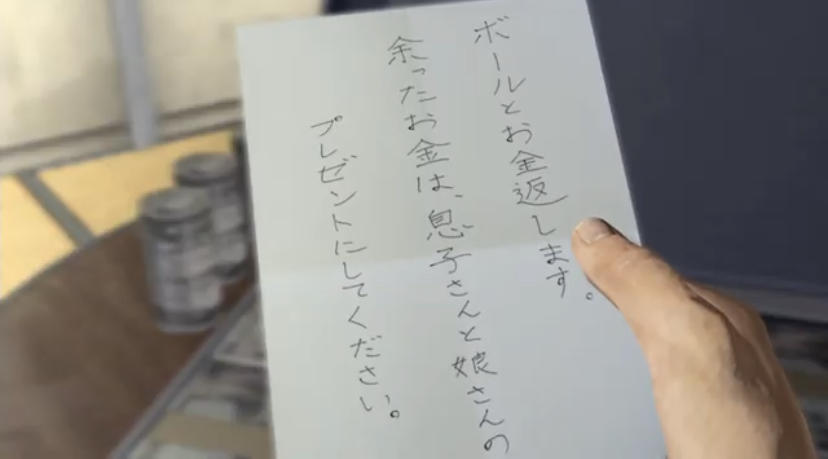 ボールとお金返します。
余ったお金は、息子さんと娘さんの
プレゼントにしてください。